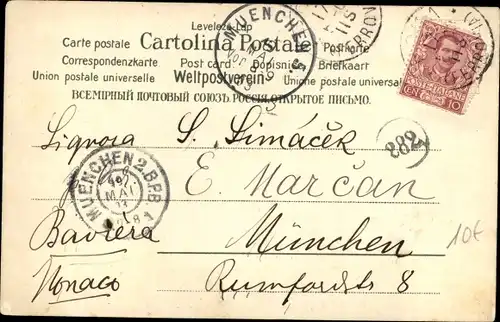 Levelező-Lap
Carte postale Cartolina Postale Postkarte
Correspondenzkarte Post card Dopisnice Briefkart
Union postale universelle Weltpostverein Unione postale universal
ВСЕМІРНЫЙ ПОЧТОВЫЙ СОЮЗЪ РОССІЯ. ОТКРЫТОЕ ПИСЬМО.
MUENCHEN
POSTE ITALIANE
CENT. 10
882
Signora S. Šimáček
E. Marčan
MUENCHEN 2. B.P.B.
MAI
Baviera München
Monaco Rumfordstr 8
10€